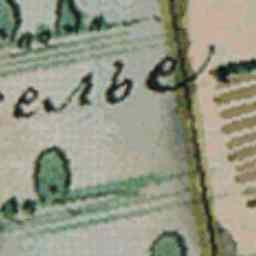 елье